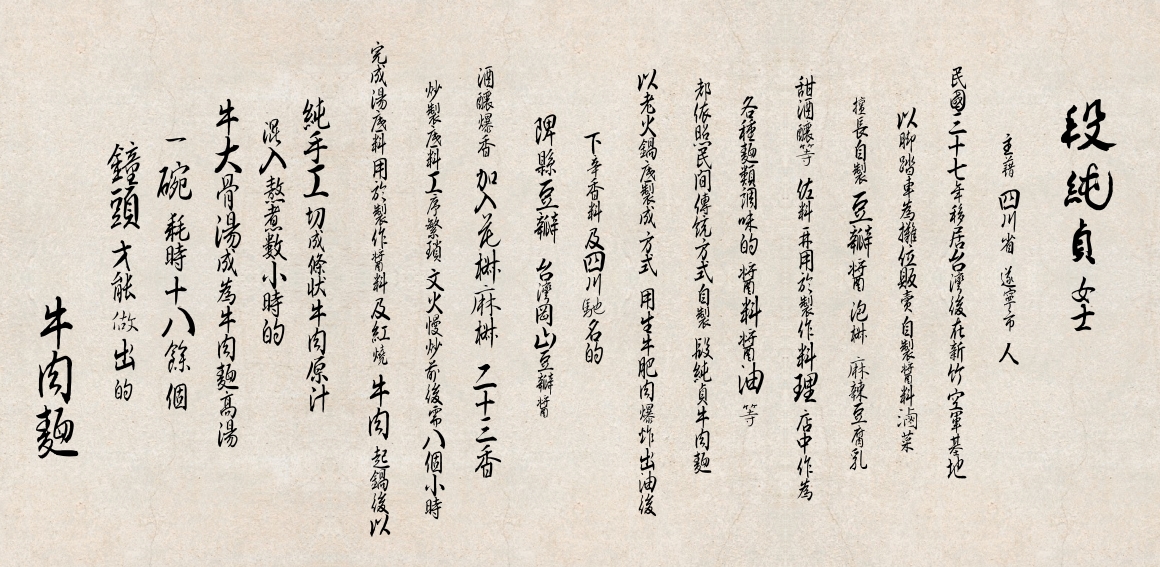 段純貞女士
主籍 四川省 遂寧市 人
民國三十七年移居台灣後在新竹空軍基地
以腳踏車為攤位販賣自製醬料滷菜
擅長自製 豆瓣醬 泡椒 麻辣豆腐乳
甜酒釀等 佐料 再用於製作料理店中作為
各種麵類調味的 醬料醬油等
都依照民间傳統方式自製 段純貞牛肉麵
以老火鍋底製成方式 用生牛肥肉爆炸出油後
下辛香料及四川馳名的
郫縣豆瓣 台灣岡山豆瓣醬
酒釀爆香 加入花椒麻椒 二十三香
炒製底料工序繁瑣 文火慢炒前後需八個小時
完成湯底料用於製作醬料及紅燒 牛肉 起鍋後以
純手工切成條狀牛肉原汁
混入熬煮数小時的
牛大骨湯成為牛肉麵高湯
一碗 耗時十八餘個
鐘頭才能做出的
牛肉麵